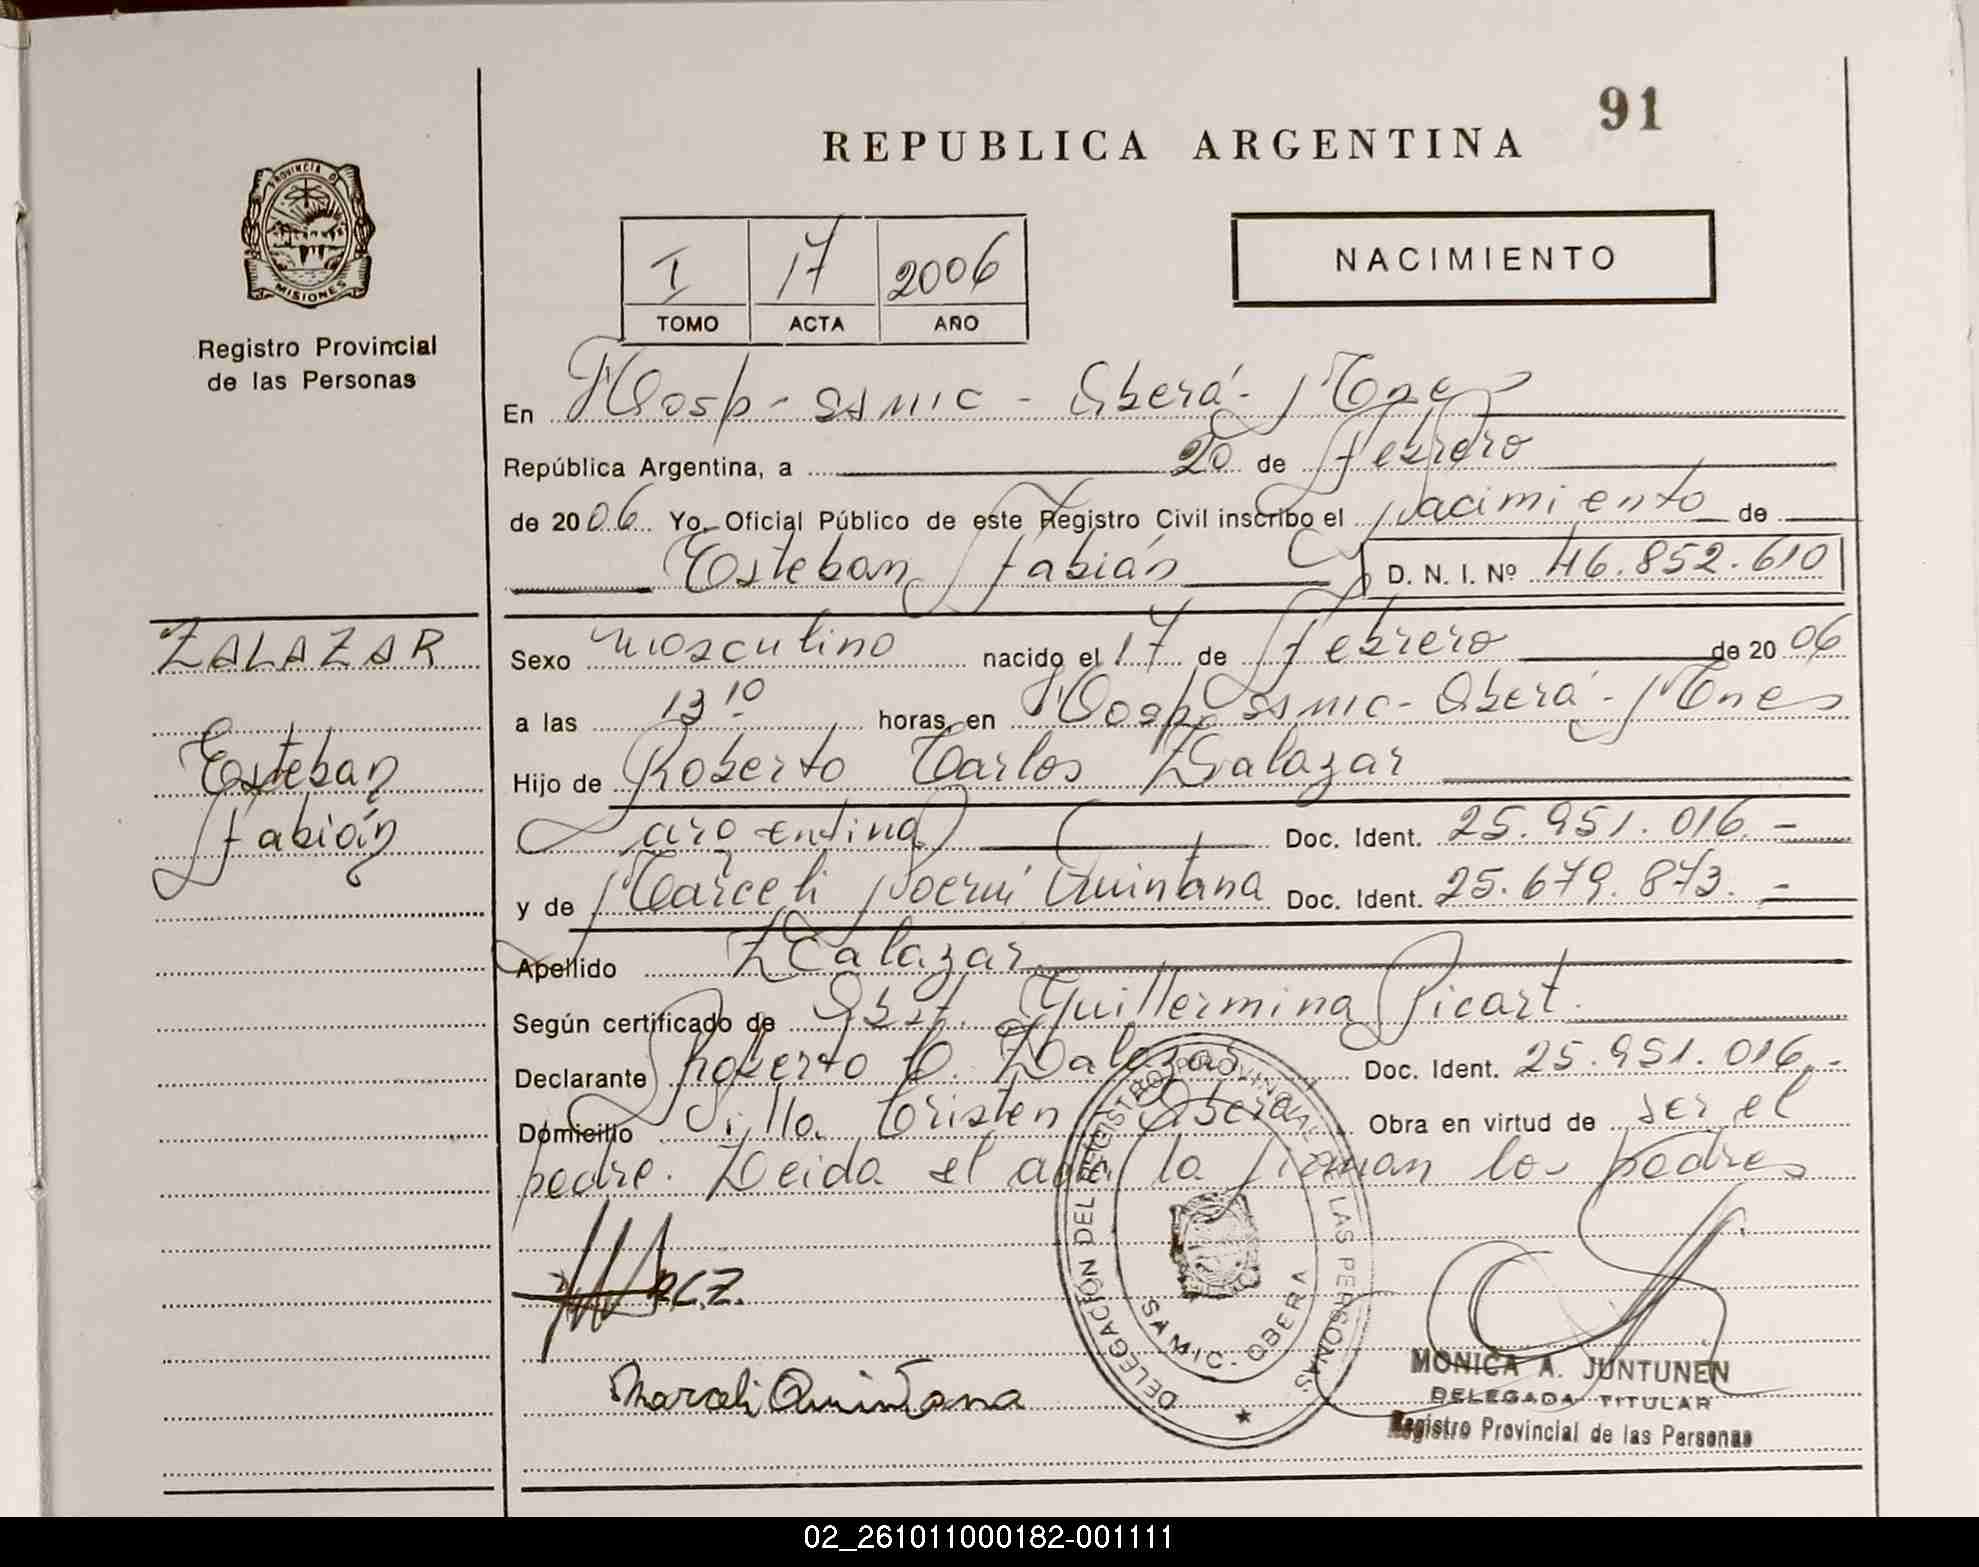 91
REPUBLICA ARGENTINA
PROVINCIA DE
MISIONES
Registro Provincial
de las Personas
I 17 2006
TOMO ACTA AÑO
NACIMIENTO
En Hosp - SAMIC - Oberá - Mnes
República Argentina, a 20 de Febrero
de 2006 Yo, Oficial Público de este Registro Civil inscribo el Nacimiento de
Esteban Fabián D. N. I. Nº 46.852.610
ZALAZAR
Esteban
Fabián
Sexo masculino nacido el 17 de Febrero de 2006
a las 13 10 horas, en Hosp. SAMIC - Oberá - Mnes
Hijo de Roberto Carlos Zalazar
argentina Doc. Ident. 25.951.016.-
y de Marceli Noemí Quintana Doc. Ident. 25.679.873.-
Apellido Zalazar
Según certificado de Obst. Guillermina Picart.
Declarante Roberto C. Zalazar Doc. Ident. 25.951.016.-
Domicilio Villa Cristen - Oberá Obra en virtud de ser el
padre. Leida el acta la firman los padres
R.C.Z.
Marceli Quintana
DELEGACIÓN DEL REGISTRO PROVINCIAL DE LAS PERSONAS
SAMIC - OBERA
MONICA A. JUNTUNEN
DELEGADA TITULAR
Registro Provincial de las Personas
02_261011000182-001111